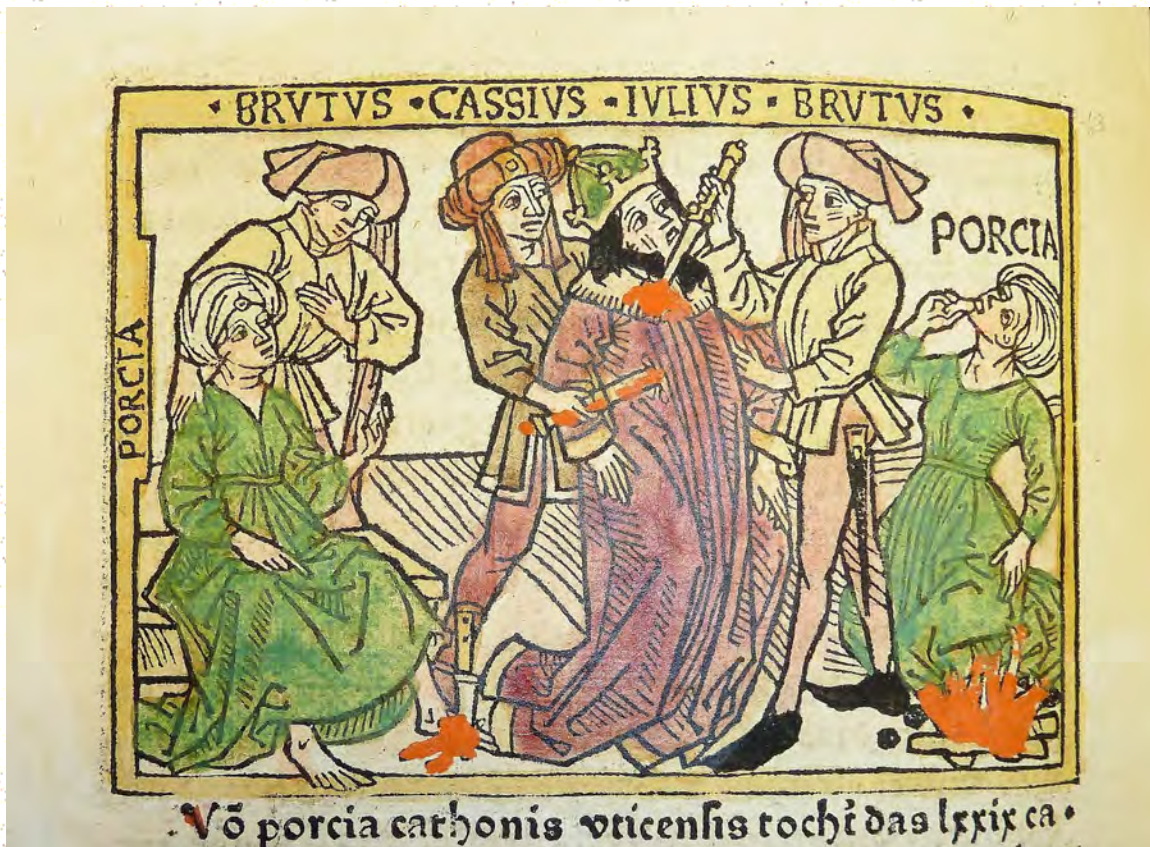 · BRVTVS · CASSIVS · IVLIVS · BRVTVS ·
PORCIA
PORCIA
· Võ porcia cathonis vticensis tocht̃ das lxxix ca ·